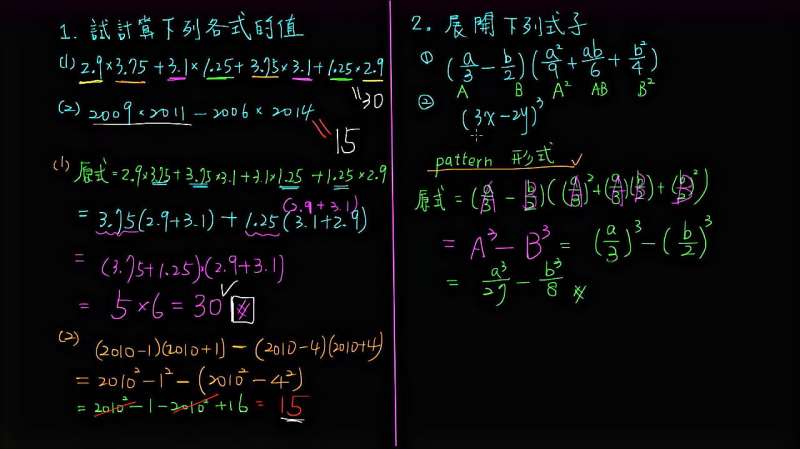 1. 試計算下列各式的值
(1) 2.9×3.75+3.1×1.25+3.75×3.1+1.25×2.9
=30
(2) 2009×2011-2006×2014
=15
(1) 原式=2.9×3.75+3.75×3.1+3.1×1.25+1.25×2.9
(2.9+3.1)
= 3.75(2.9+3.1)+1.25(3.1+2.9)
= (3.75+1.25)×(2.9+3.1)
= 5×6=30
(2) (2010-1)(2010+1)-(2010-4)(2010+4)
= 2010²-1²-(2010²-4²)
= 2010²-1-2010²+16 = 15
2. 展開下列式子
① (a/3 - b/2)(a²/9 + ab/6 + b²/4)
A B A² AB B²
② (3x-2y)³
pattern 形式
原式 = (a/3 - b/2)((a/3)²+(a/3)(b/2)+(b/2)²)
= A³-B³ = (a/3)³-(b/2)³
= a³/27 - b³/8